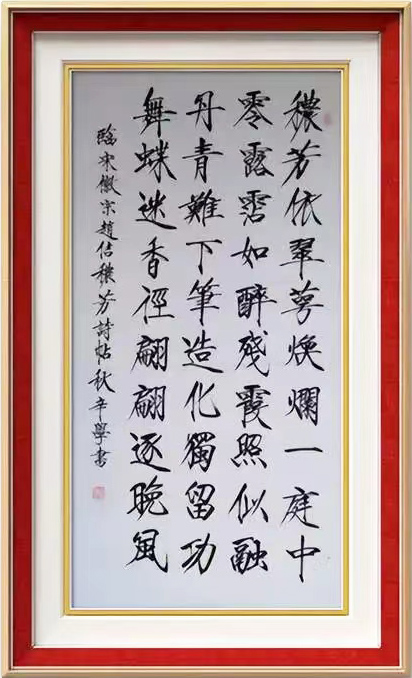 穠芳依翠萼煥爛一庭中
零露霑如醉殘霞照似融
丹青難下筆造化獨留功
舞蝶迷香徑翩翩逐晚風
臨宋徽宗趙佶穠芳詩帖秋辛學書